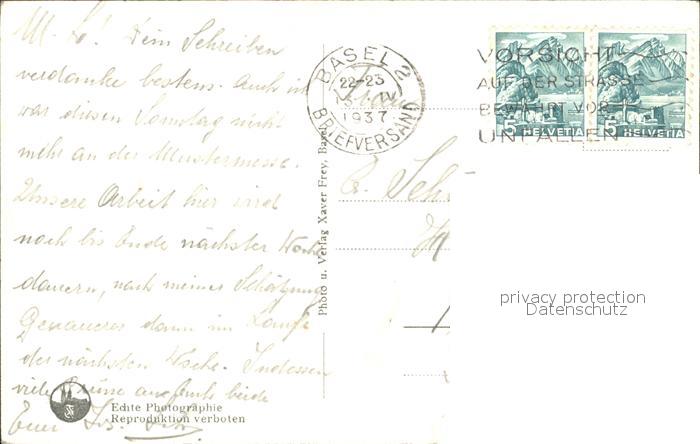 M. L! Dein Schreiben
verdanke bestens. Auch ich
war diesen Samstag nicht
mehr an der Mustermesse.
Unsere Arbeit hier wird
noch bis Ende nächster Woche
dauern, nach meiner Schätzung
Genaueres dann im Laufe
der nächsten Woche. Indessen
viele Grüsse an Euch beide
Euer
Echte Photographie
Reproduktion verboten
Photo u. Verlag Xaver Frey, Basel
BASEL 2
22-23
1937
BRIEFVERSAND
VORSICHT
AUF DER STRASSE
BEWAHRT VOR
UNFÄLLEN
5 HELVETIA
5 HELVETIA
privacy protection
Datenschutz